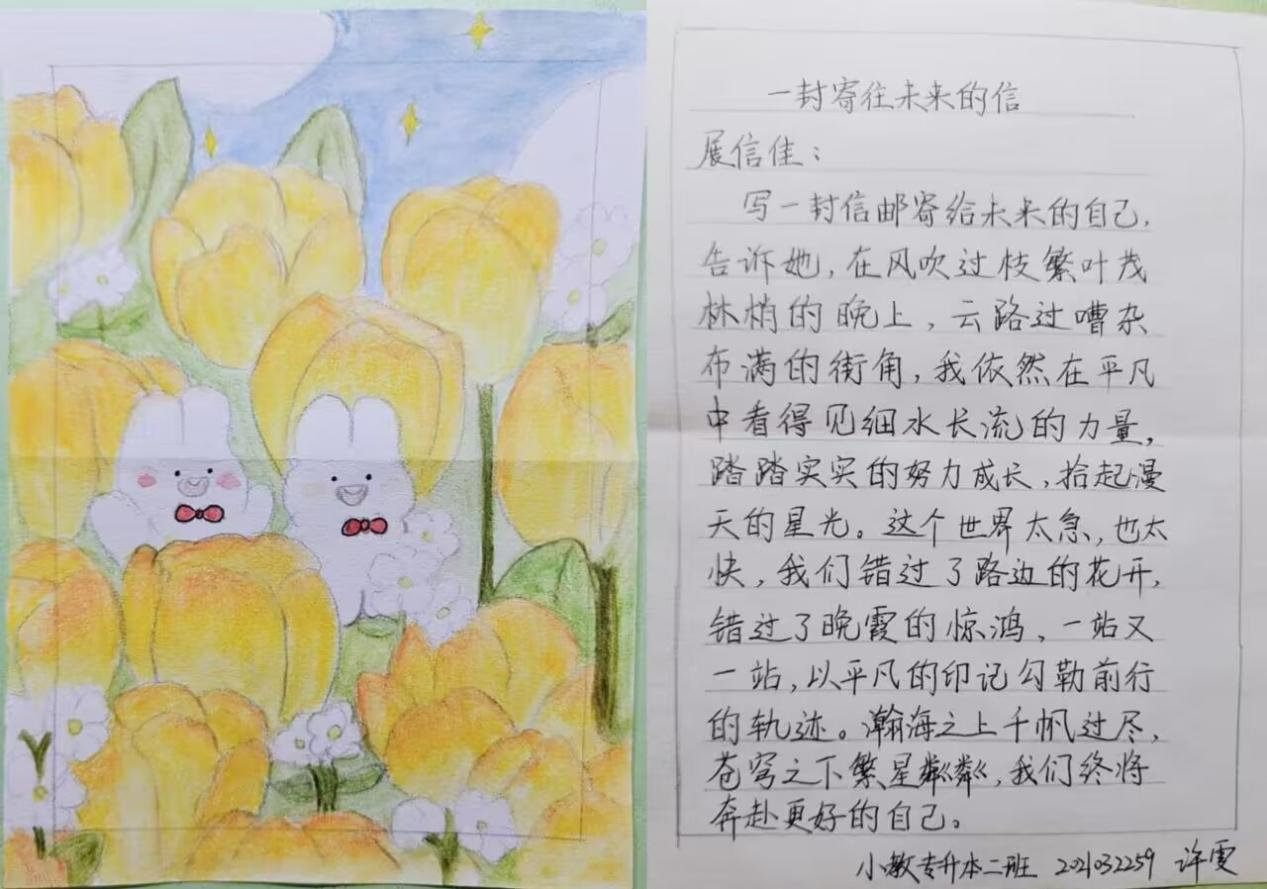 一封寄往未来的信
展信佳：
写一封信邮寄给未来的自己，
告诉她，在风吹过枝繁叶茂
林梢的晚上，云路过嘈杂
布满的街角，我依然在平凡
中看得见细水长流的力量，
踏踏实实的努力成长，拾起漫
天的星光。这个世界太急，也太
快，我们错过了路边的花开，
错过了晚霞的惊鸿，一站又
一站，以平凡的印记勾勒前行
的轨迹。瀚海之上千帆过尽，
苍穹之下繁星粼粼，我们终将
奔赴更好的自己。
小教专升本二班 2021032259 许雯